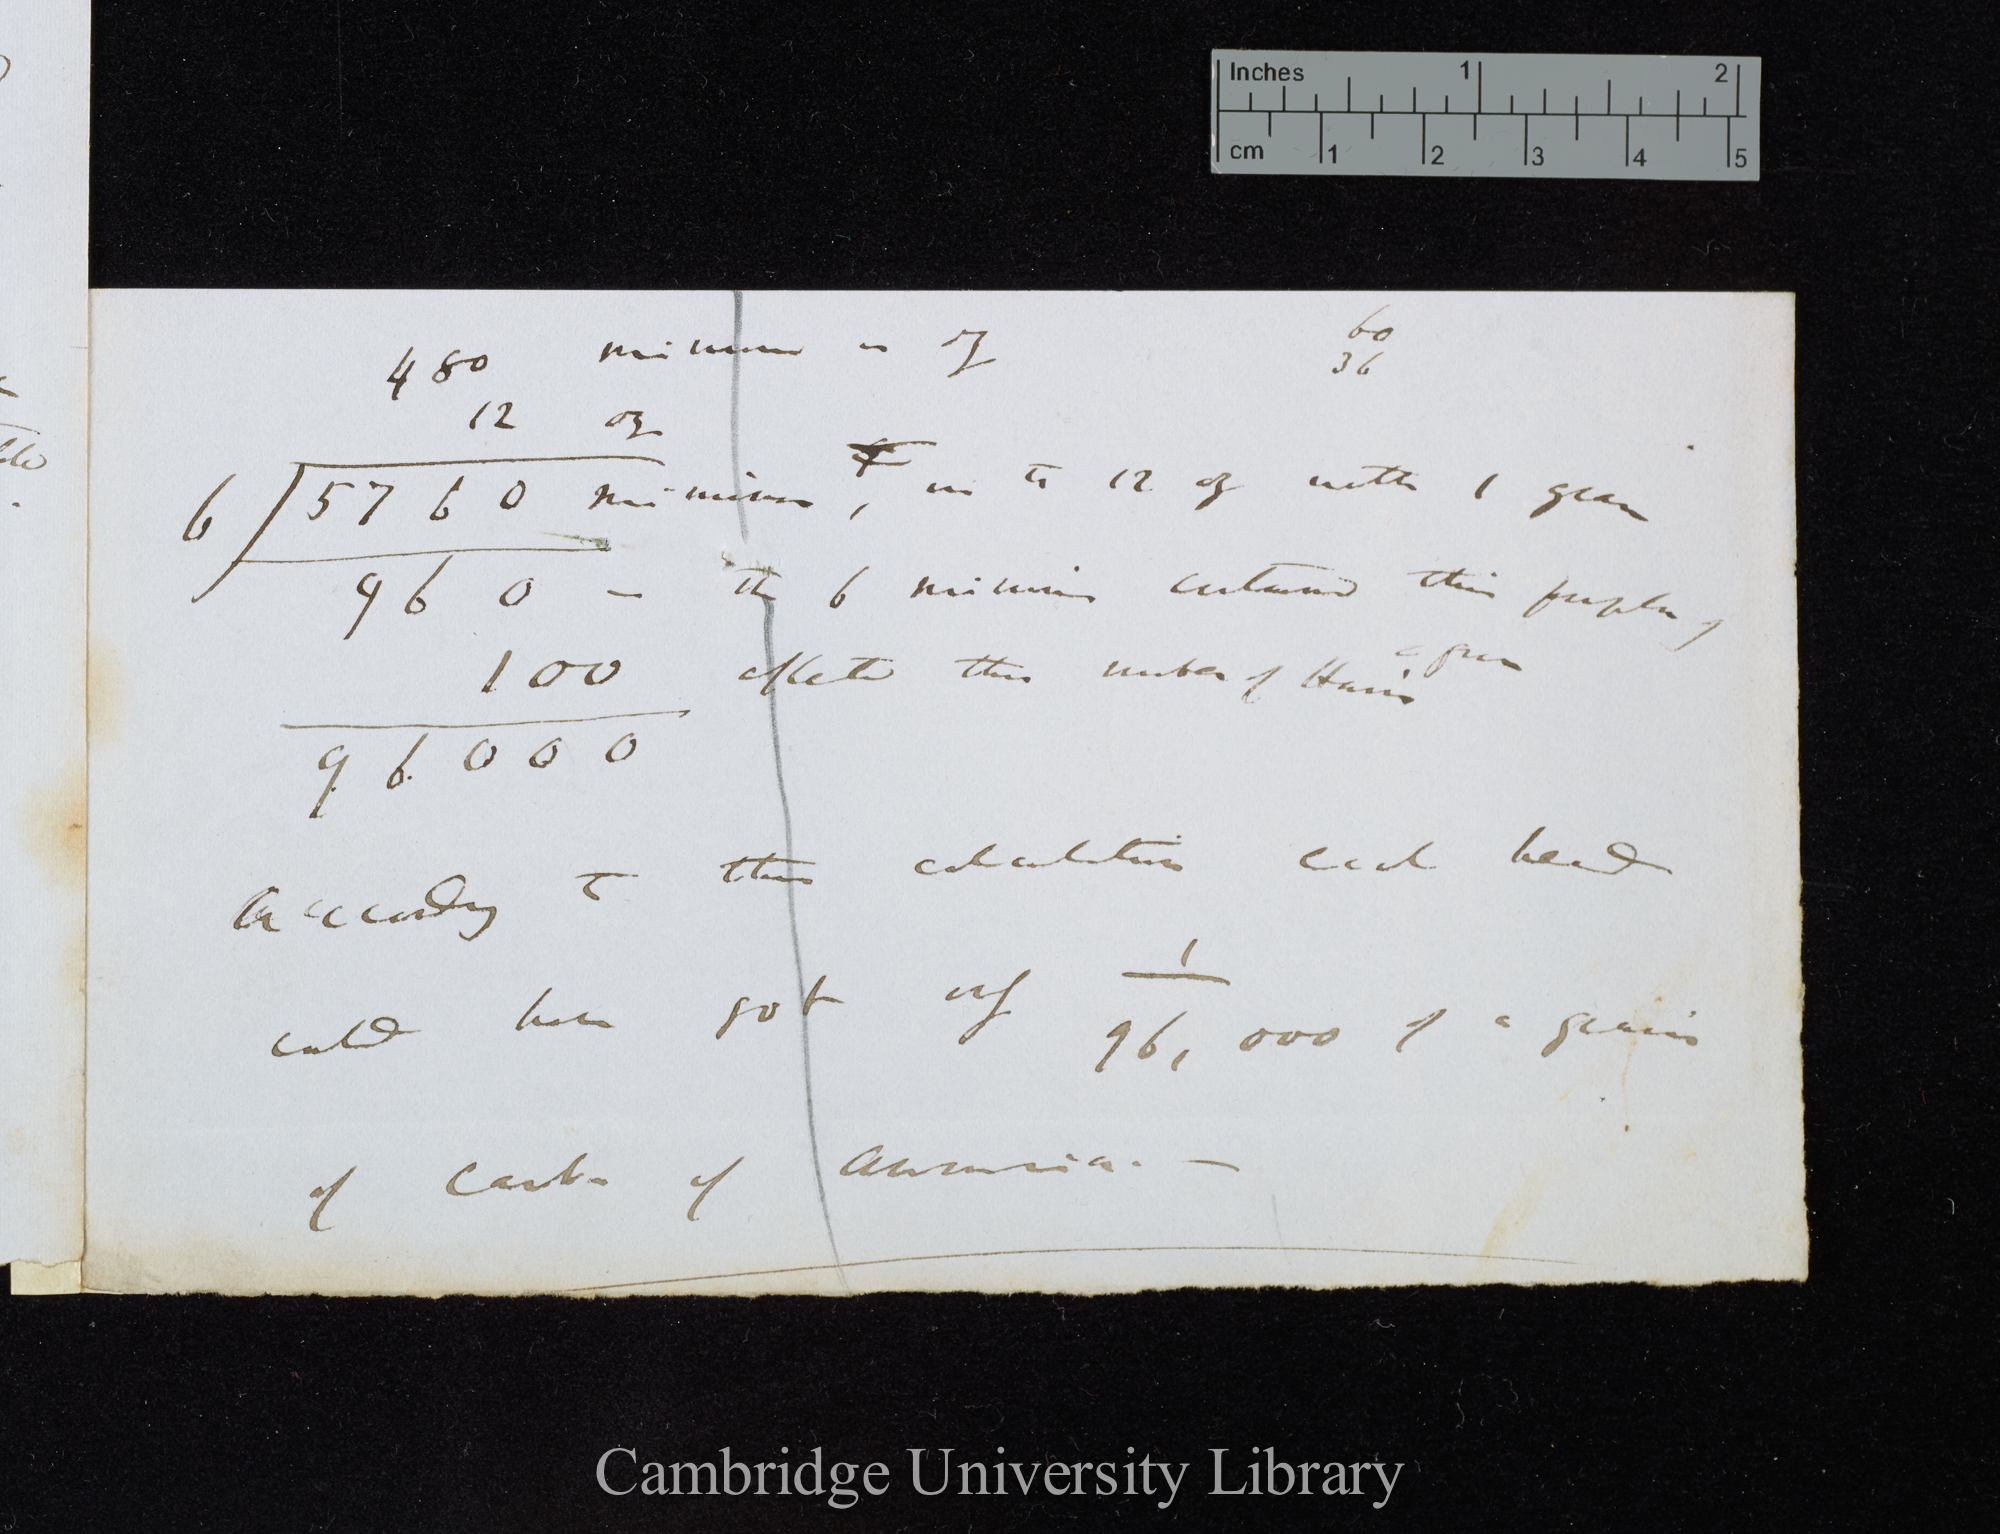 Inches 1 2
cm 1 2 3 4 5
480 minims in oz
60
36
12 oz
6 5760 minims, in the 12 oz with 1 grain
960 — the 6 minims contained this proportion of a grain
100 affected this number of Hairs
96000
According to this calculation each head
could have got only 1/96,000 of a grain
of Carb. of Ammonia. —
Cambridge University Library